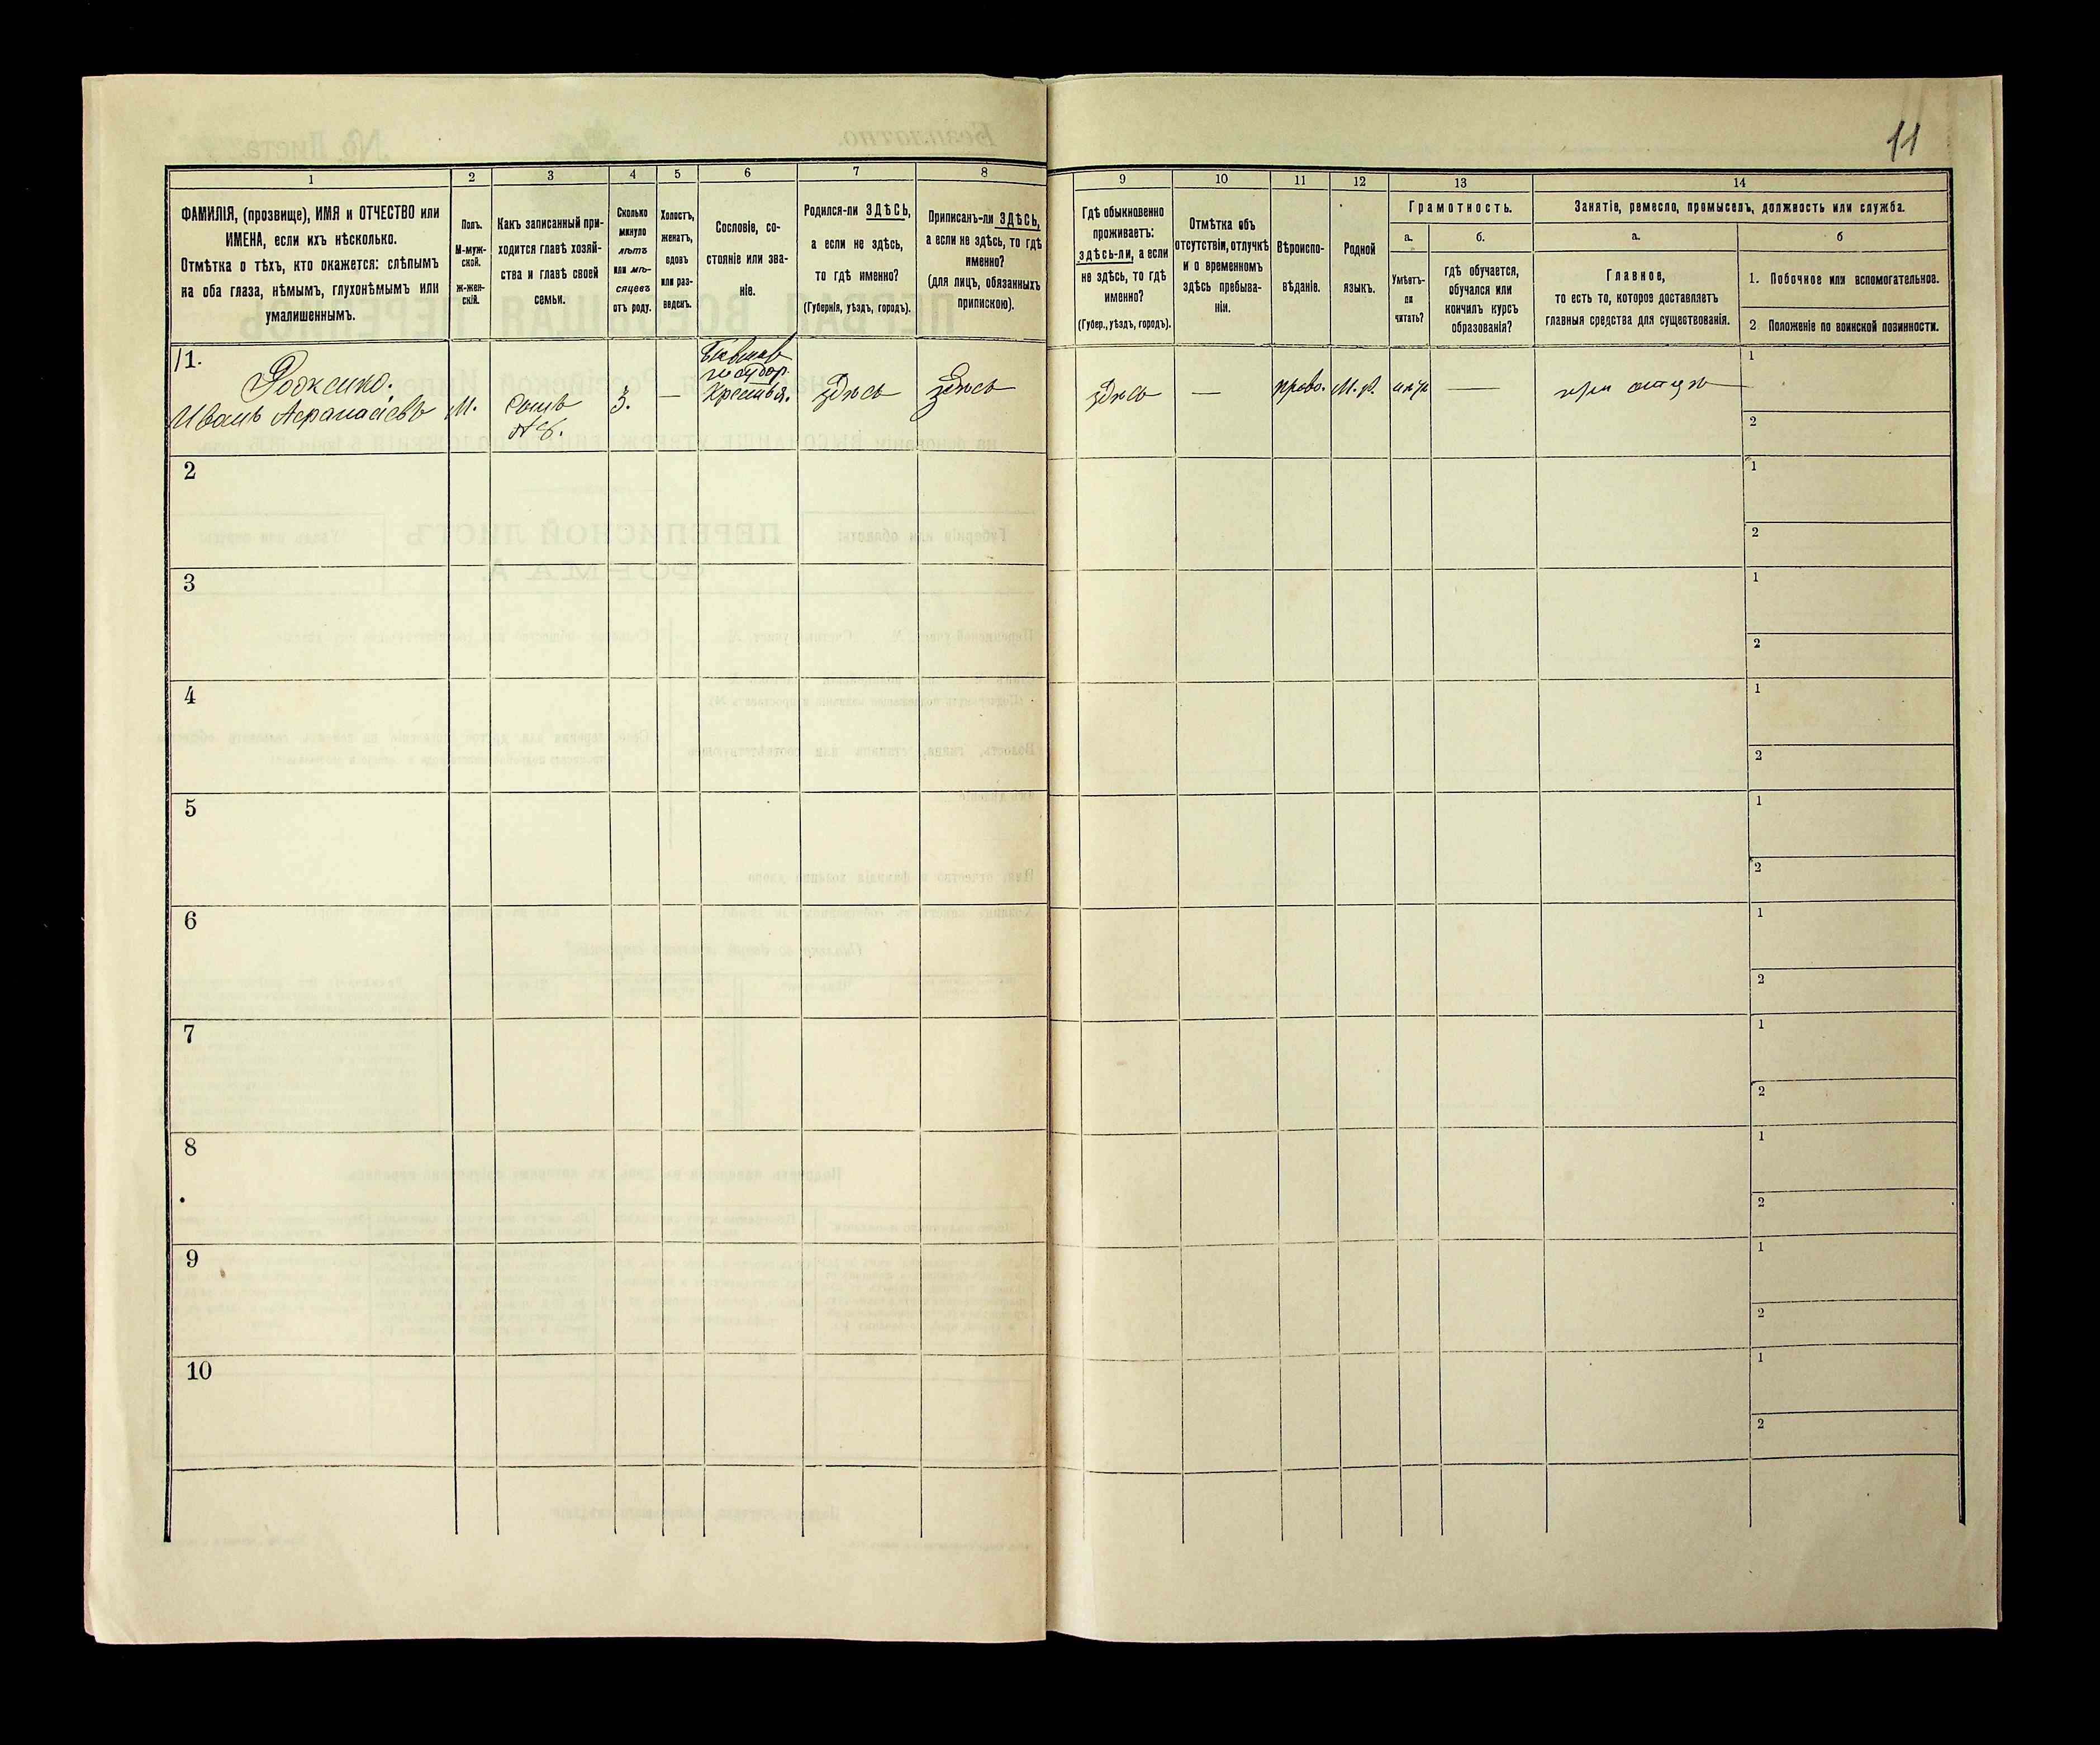 11
1
2
3
4
5
6
7
8
ФАМИЛІЯ, (прозвище), ИМЯ и ОТЧЕСТВО или
ИМЕНА, если ихъ нѣсколько.
Отмѣтка о тѣхъ, кто окажется: слѣпымъ
на оба глаза, нѣмымъ, глухонѣмымъ или
умалишеннымъ.
Полъ.
М-муж-
ской.
Ж-жен-
скій.
Какъ записанный при-
ходится главѣ хозяй-
ства и главѣ своей
семьи.
Сколько
минуло
лѣтъ
или мѣ-
сяцевъ
отъ роду.
Холостъ,
женатъ,
вдовъ
или раз-
веденъ.
Сословіе, со-
стояніе или зва-
ніе.
Родился-ли ЗДѢСЬ,
а если не здѣсь,
то гдѣ именно?
(Губернія, уѣздъ, городъ).
Приписанъ-ли ЗДѢСЬ,
а если не здѣсь, то гдѣ
именно?
(для лицъ, обязанныхъ
припискою).
9
10
11
12
13
14
Гдѣ обыкновенно
проживаетъ:
здѣсь-ли, а если
не здѣсь, то гдѣ
именно?
(Губер., уѣздъ, городъ).
Отмѣтка объ
отсутствіи, отлучкѣ
и о временномъ
здѣсь пребыва-
ніи.
Вѣроиспо-
вѣданіе.
Родной
языкъ.
Грамотность.
а.
Умѣетъ-
ли
читать?
б.
гдѣ обучается,
обучался или
кончилъ курсъ
образованія?
Занятіе, ремесло, промыселъ, должность или служба.
а.
Главное,
то есть то, которое доставляетъ
главныя средства для существованія.
б
1. Побочное или вспомогательное.
2 Положеніе по воинской повинности.
11.
Иванъ Афанасіевъ
М.
сынъ
3.
—
Крестья.
здѣсь
здѣсь
здѣсь
—
право.
М. Р.
—
при отцѣ
1
2
2
1
2
3
1
2
4
1
2
5
1
2
6
1
2
7
1
2
8
1
2
9
1
2
10
1
2